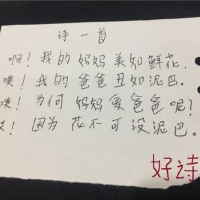 诗一首
啊！我的妈妈美如鲜花，
噢！我的爸爸丑如泥巴。
咦！为何妈妈爱爸爸呢？
哎！因为花不可没泥巴。
好诗